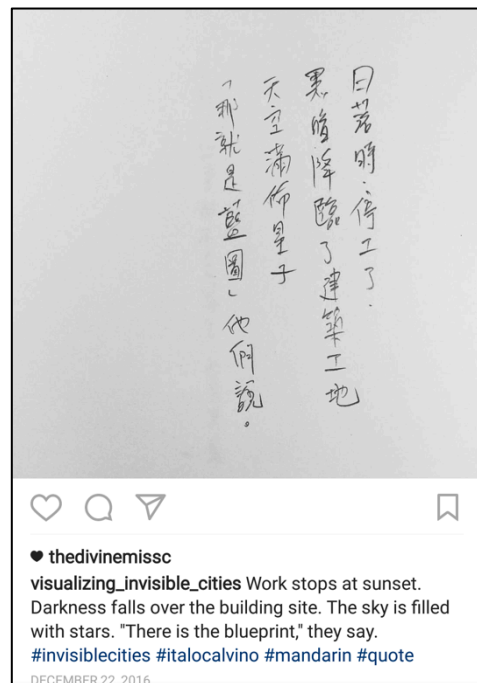 日落時．停工了．
黑暗降臨了建築工地
天空滿佈星子
「那就是藍圖」他們說。
thedivinemissc
visualizing_invisible_cities Work stops at sunset.
Darkness falls over the building site. The sky is filled
with stars. "There is the blueprint," they say.
#invisiblecities #italocalvino #mandarin #quote
DECEMBER 22, 2016